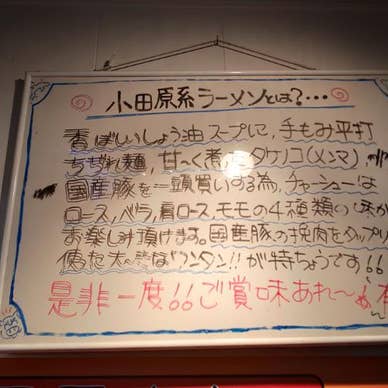 小田原系ラーメンとは?…
香ばしいしょう油スープに,手もみ平打
ちぢれ麺,甘〜く煮たタケノコ(メンマ)
国産豚を一頭買いする為,チャーシューは
ロース,バラ,肩ロース,モモの4種類の味が
お楽しみ頂けます。国産豚の挽肉をタップリ
使た大きなワンタン!!が特ちょうです!!
是非一度!!ご賞味あれ〜